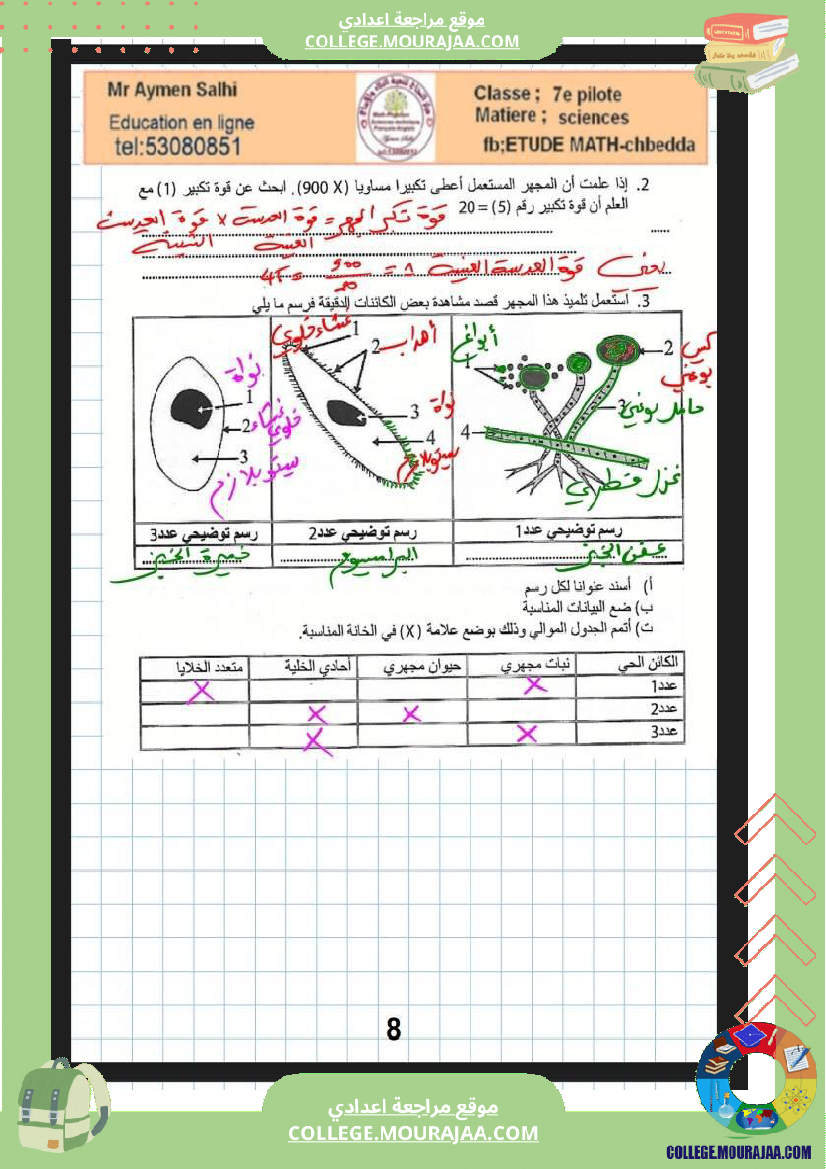 موقع مراجعة اعدادي
COLLEGE.MOURAJAA.COM
Mr Aymen Salhi
Education en ligne
tel:53080851
Classe ; 7e pilote
Matiere ; sciences
fb;ETUDE MATH-chbedda
2. إذا علمت أن المجهر المستعمل أعطى تكبيرا مساويا (900 X). ابحث عن قوة تكبير (1) مع
العلم أن قوة تكبير رقم (5) = 20
قوة تكبير المجهر = قوة العدسة × قوة العدسة
العينية الشيئية
يعني قوة العدسة العينية
3. استعمل تلميذ هذا المجهر قصد مشاهدة بعض الكائنات الدقيقة فرسم ما يلي
أبواغ 1
2 كيس بوغي
3 حامل بوغي
4
غزل فطري
غشاء خلوي 1
2 أهداب
3 نواة
4 سيتوبلازم
نواة 1
2 غشاء خلوي
3 سيتوبلازم
رسم توضيحي عدد1 رسم توضيحي عدد2 رسم توضيحي عدد3
عفن الخبز البراميسيوم خميرة الخبز
أ) أسند عنوانا لكل رسم
ب) ضع البيانات المناسبة
ت) أتمم الجدول الموالي وذلك بوضع علامة (X) في الخانة المناسبة.
الكائن الحي نبات مجهري حيوان مجهري أحادي الخلية متعدد الخلايا
عدد1 X X
عدد2 X X
عدد3 X X
8
موقع مراجعة اعدادي
COLLEGE.MOURAJAA.COM
COLLEGE.MOURAJAA.COM